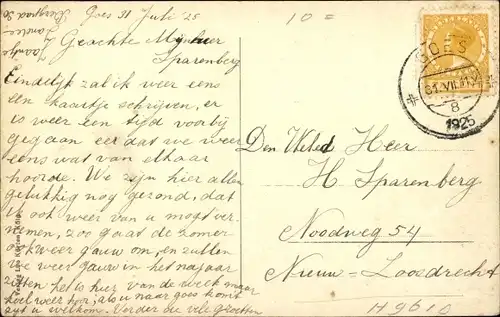 Goes 31 Juli '25
10 =
Geachte Mijnheer
Sparenberg
Eindelijk zal ik weer eens
een kaartje schrijven, er
is weer een tijd voorbij
gegaan eer dat we weer
eens wat van elkaar
hoorde. We zijn hier allen
gelukkig nog gezond, dat
U ook weer van u mogt ver-
nemen, zoo gaat de zomer
ook weer gauw om, en zullen
we weer gauw in het najaar
zitten het is hier van de week maar
koel weer hoor, als u naar goes komt
zyt u welkom. Verder de vele groetten
GOES
31.VII.
8
1925
Den Weled Heer
H Sparenberg
Noodweg 54
Nieuw-Loosdrecht
H 96 10